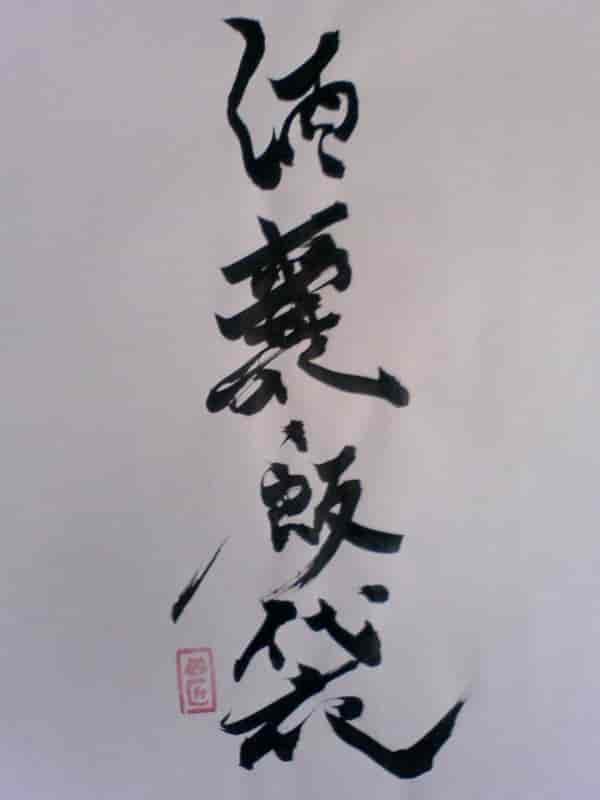 酒囊飯袋